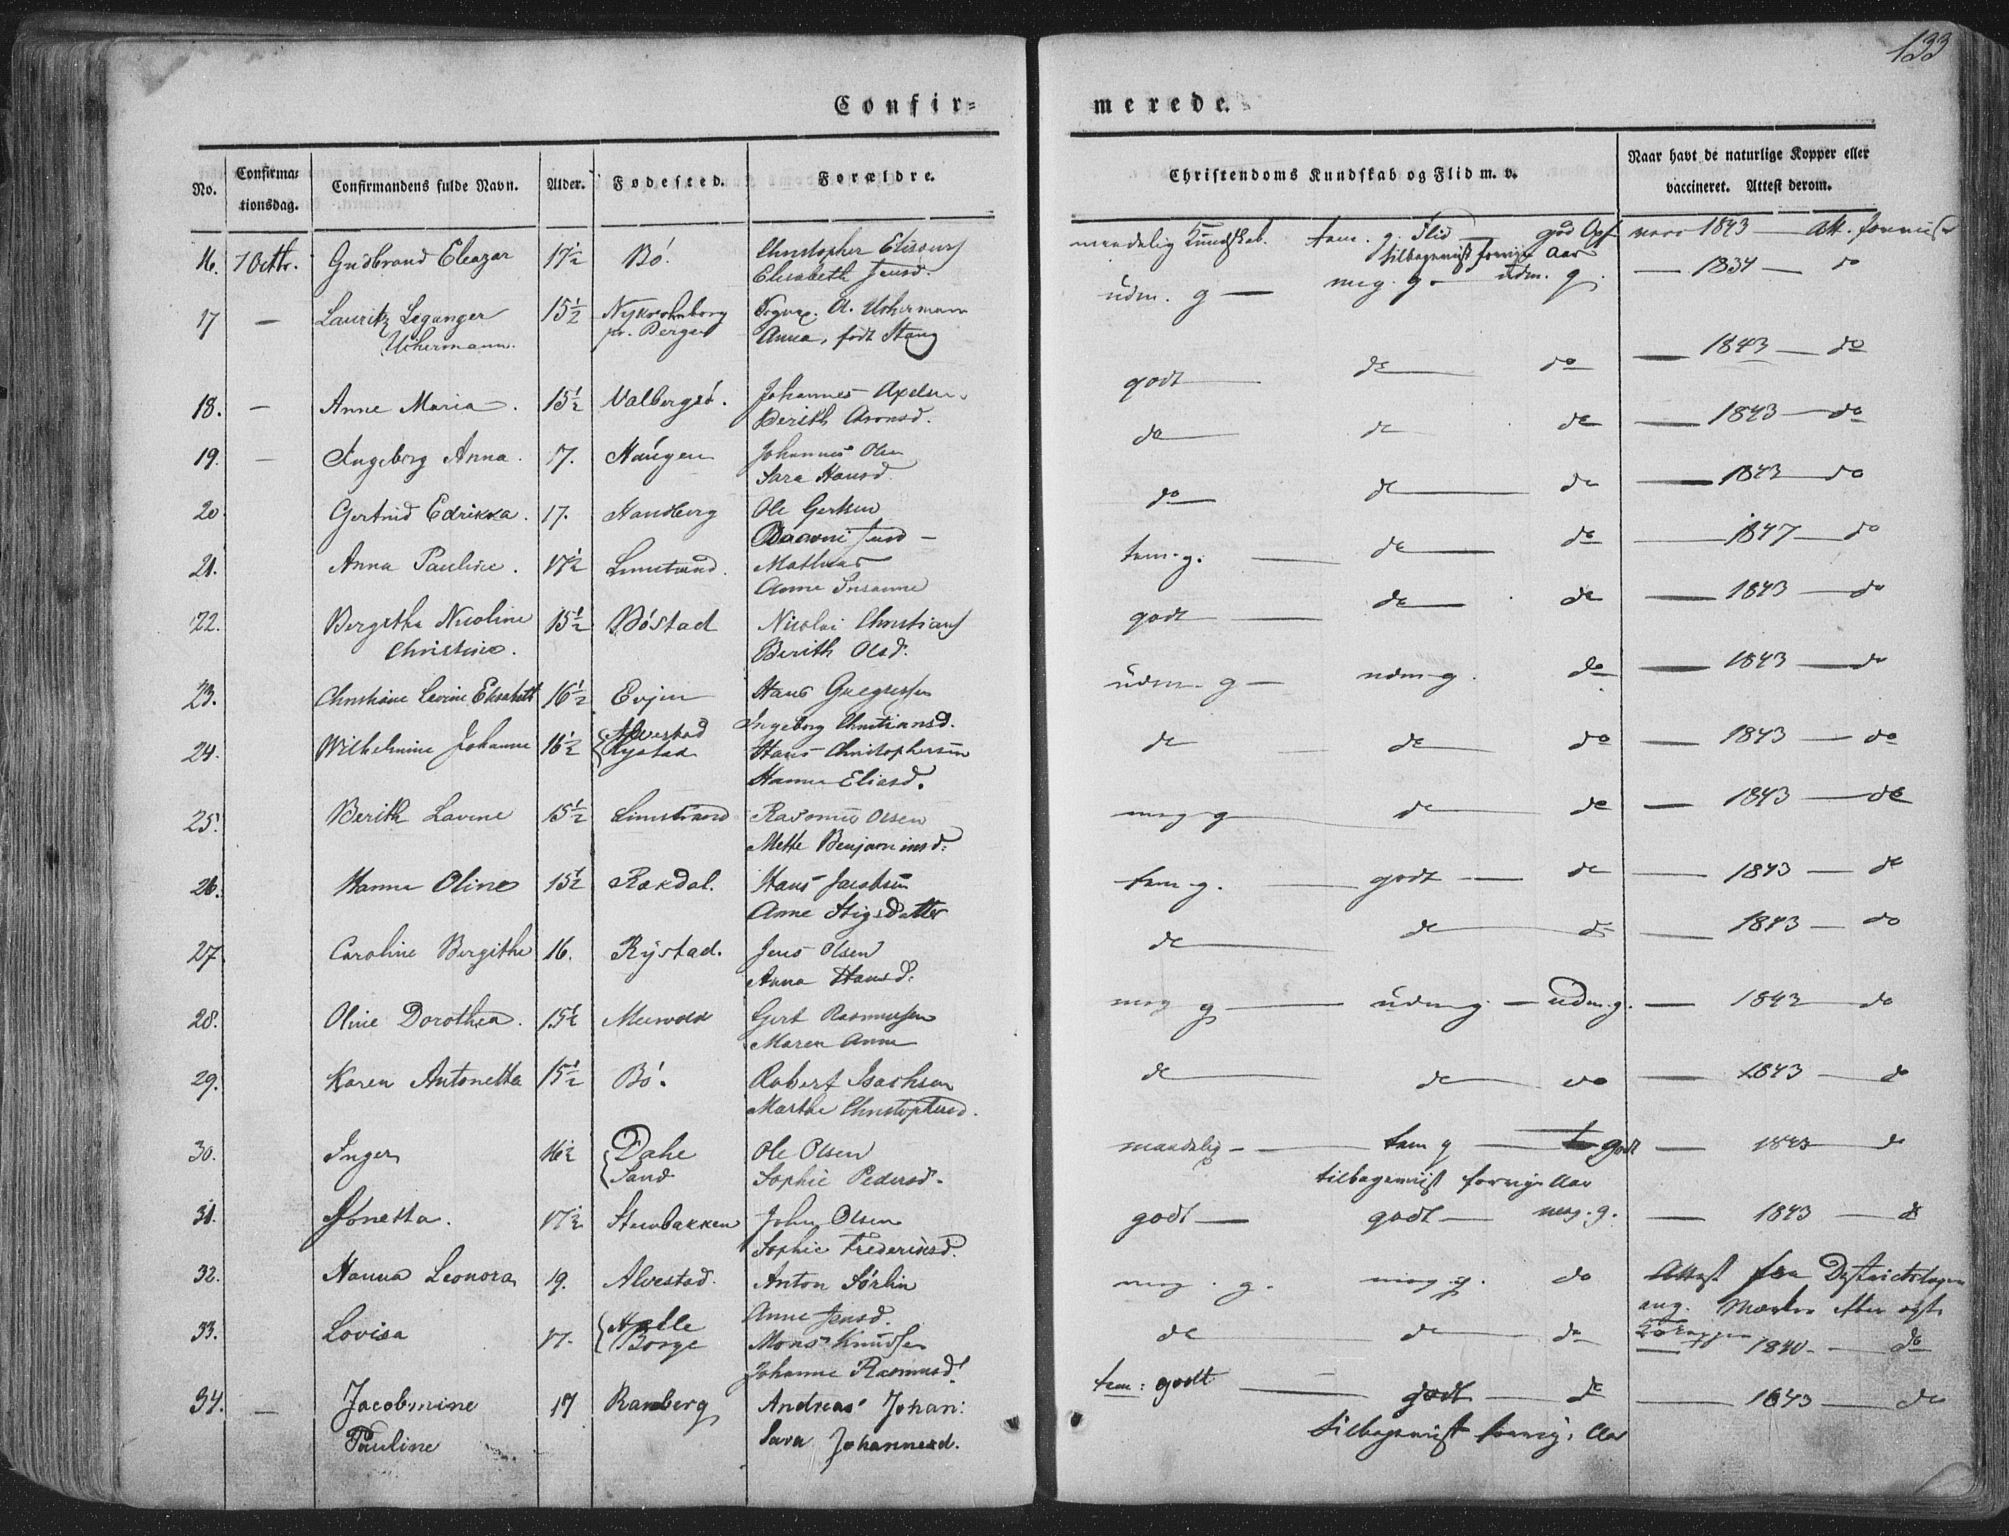 133
Confir-
merede.
No.
Confirma-
tionsdag.
Confirmandens fulde Navn.
Alder.
Fødested.
Forældre.
Christendoms Kundskab og Flid m. v.
Naar havt de naturlige Kopper eller
vaccineret. Attest derom.
16. 7 Octbr. Gudbrand Eleazar 17½ Bö. Christopher
Elisabeth Jensd.
maadelig Kundskab. tem. g. Flid god Opf 1843 Att. foreviist
tilbageviist forrige Aar
17 — Lauritz Leganger 15½ Nykronborg A. Uchermann
Uchermann. pr. Bergen Anna, født Stang
udm. g — meg. g — udm. g. — 1834 — do
18. — Anne Maria. 15½ Valbergsö. Johannes Axelsen
Berith Aronsd.
godt — do do — 1843 — do
19. — Ingeborg Anna. 17. Haugen Johannes Olsen
Sara Hansd.
do — do do — 1843 — do
20 Gertrud Edrikka. 17. Handberg Ole Gertsen
Jensd —
do — do — do — 1843 — do
21. Anna Pauline. 17½ Limstrand. Mathias
Anne Susanne
tem. g. — do — do — 1847 — do
22. Bergithe Nicoline 15½ Böstad Nicolai Christians
Christine. Berith Olsd.
godt — do — do — 1843 — do
23. Christiane Lavine Elisabeth 16½ Evjen Hans Gregersen
Ingeborg Christiansd.
udm. g — udm. g. do — 1843 — do
24. Wilhelmine Johanne 16½ Alvestad
Rystad Hans Christophersen
Hanna Eliasd.
do — do — do — 1843 — do
25. Berith Lavine 15½ Limstrand Rasmus Olsen
Mette Benjaminsd:
meg g — do — do — 1843 — do
26. Hanna Oline 15½ Rakdal. Hans Jacobsen
Anne Stigsdatter
tem. g. — godt — do — 1843 — do
27. Caroline Bergithe 16. Rystad. Jens Olsen
Anna Hansd:
do — do — do — 1843 — do
28. Oline Dorothea. 15½ Gert Rasmussen
Maren Anne
meg g — udm g. — udm. g. — 1843 — do
29. Karen Antonetta 15½ Bö. Robert Isachsen
Marthe Christophersd.
do — do — do — 1843 — do
30. Inger 16½ Dahe
Sand Ole Olsen
Sophie Pedersd.
maadelig — tem g — godt — 1843 — do
tilbageviist forrige Aar
31. Jonetta. 17½ Steenbakken John Olsen
Sophie Frederiksd.
godt — godt — meg. g. — 1843 — do
32. Hanna Leonora 19. Alvestad. Anton Sörlin
Anne Jensd.
meg. g. meg. g. do Attest fra Districtslægen
ang. Mærker efter ægte
Kokopper
33. Lovisa 17. Halle
Borge Mons Knudsen
Johanne Rasmusd.
do — do — do — 1840 — do
34. — Jacobmine 17 Ramberg Andreas Johan:
Pauline Sara Johannesd.
tem: godt — godt — do — 1843 — do
tilbageviist forrig: Aar